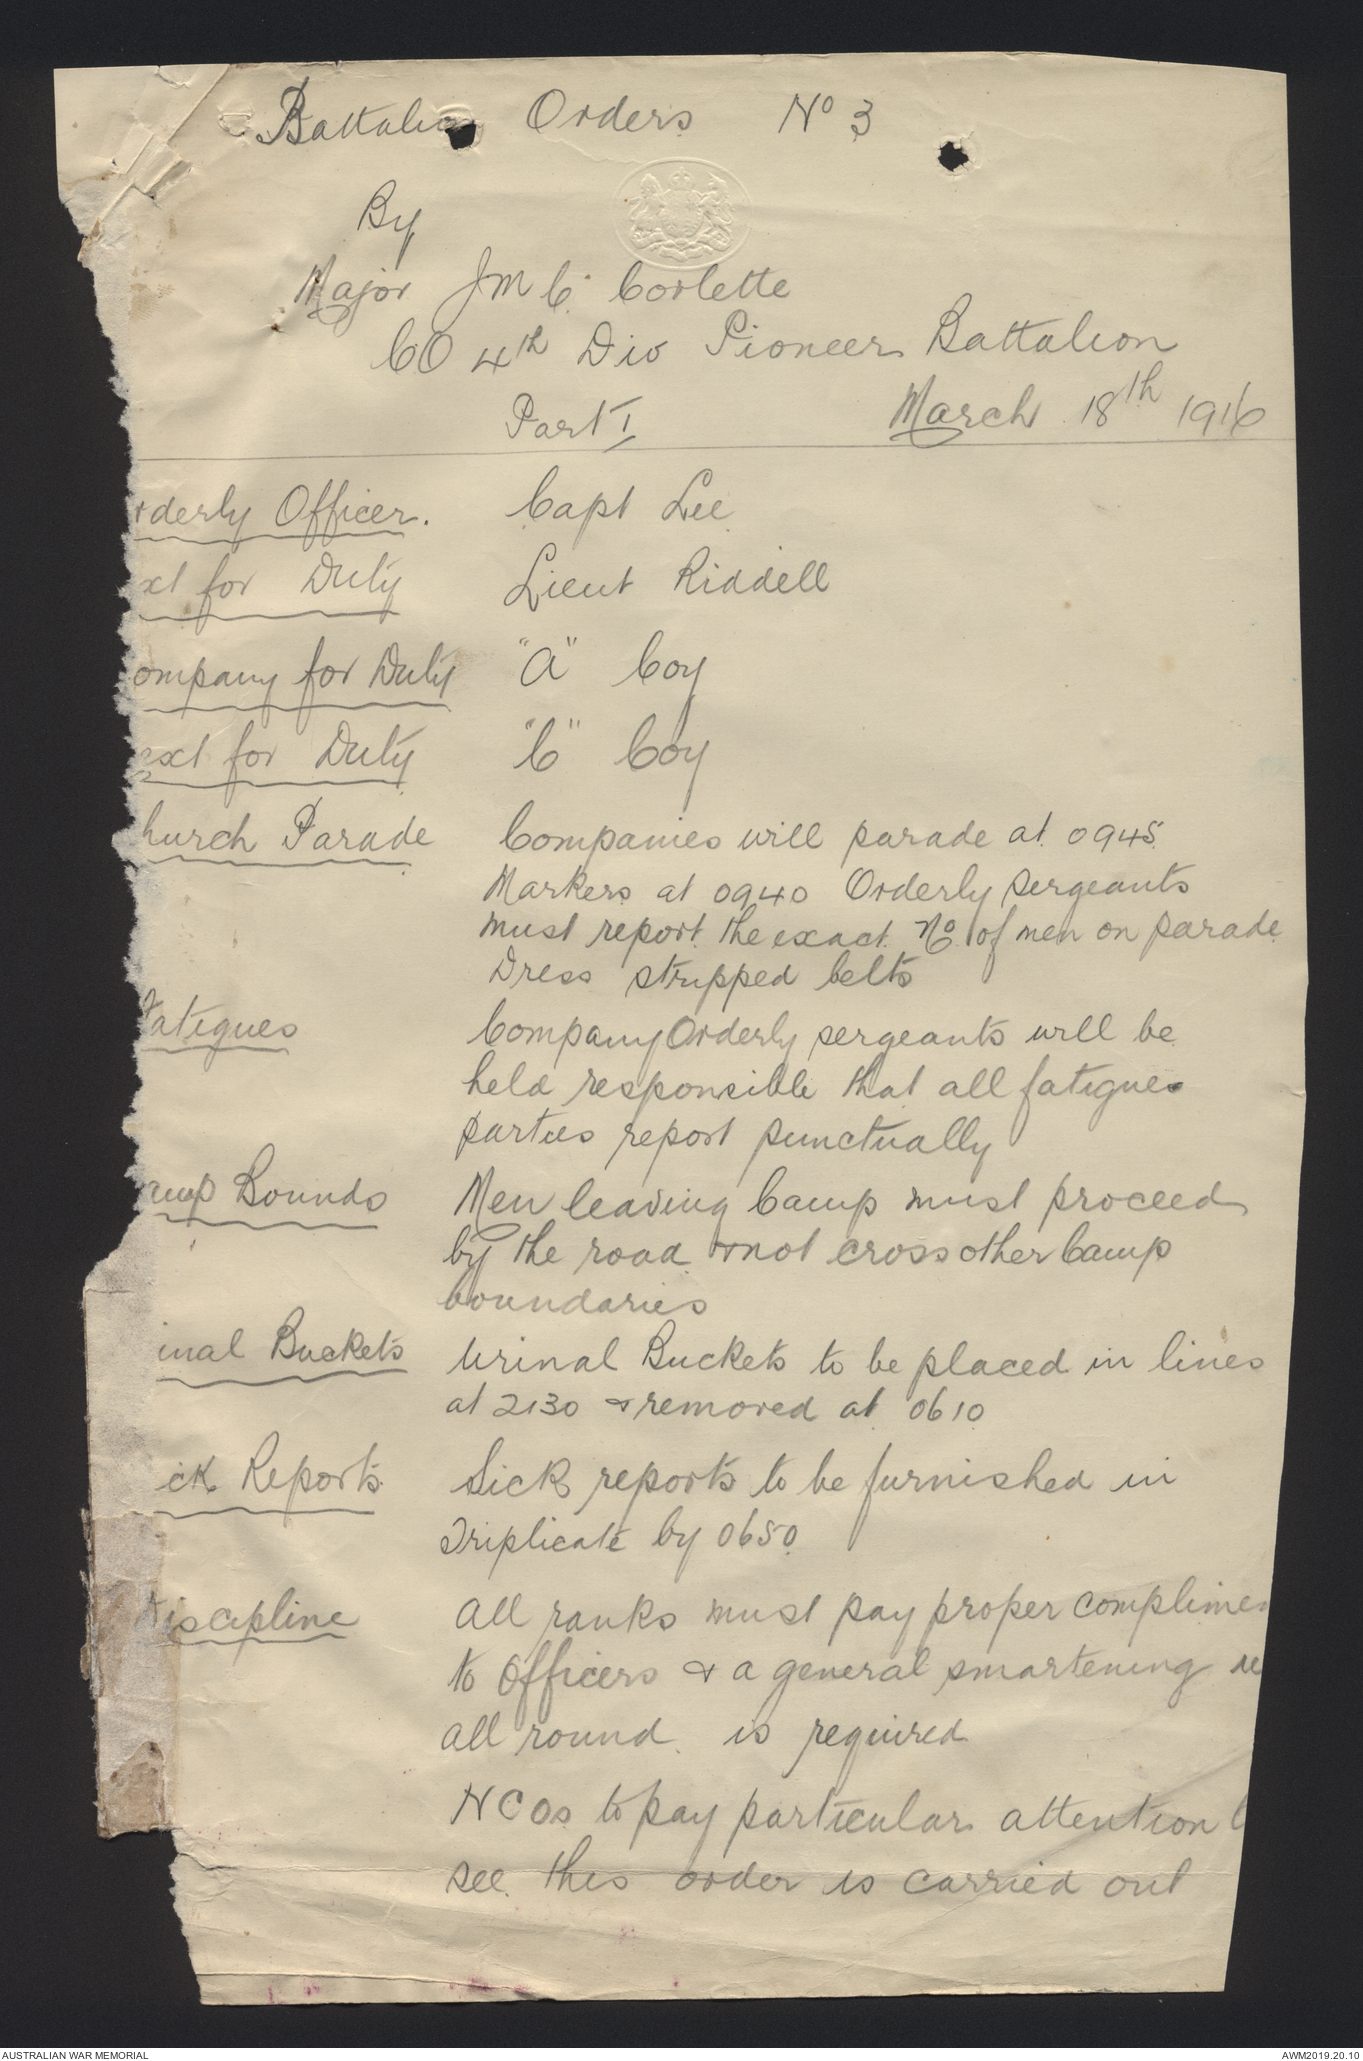 Battalion Orders No 3
By
Major J M C Corlette
CO 4th Div Pioneer Battalion
Part I March 18th 1916
rderly Officer. Capt Lee
xt for Duty Lieut Riddell
ompany for Duty "A" Coy
ext for Duty "C" Coy
hurch Parade Companies will parade at 0945
Markers at 0940 Orderly sergeants
must report the exact No of men on parade
Dress stripped belts
Fatigues Company Orderly sergeants will be
held responsible that all fatigues
parties report punctually
amp Bounds Men leaving Camp must proceed
by the road & not cross other Camp
boundaries
inal Buckets Urinal Buckets to be placed in lines
at 2130 & removed at 0610
ick Reports Sick reports to be furnished in
Triplicate by 0650
Discipline All ranks must pay proper complimen
to Officers & a general smartening u
all round is required
NCOs to pay particular attention t
see this order is carried out
AUSTRALIAN WAR MEMORIAL AWM2019.20.10